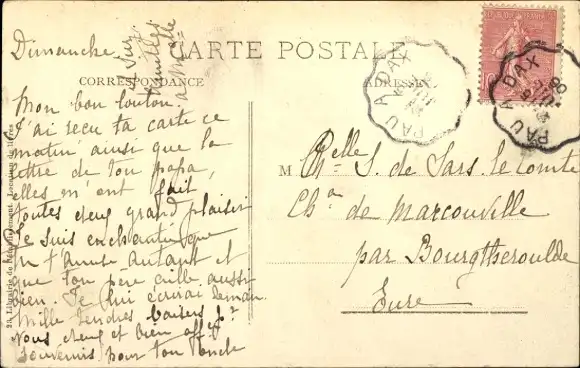 Dimanche
CARTE POSTALE
CORRESPONDANCE
ADRESSE
Mon bon louton.
J'ai reçu ta carte ce
matin ainsi que la
lettre de ton papa,
elles m'ont fait
toutes deux grand plaisir
Je suis enchantée que
tu t'amuse autant et
que ton père aille aussi
bien. Je lui écrirai demain.
Mille tendres baisers pr
vous deux et bien aff
souvenirs pour ton oncle
M
Relle S. de Sars le Comte
Chau de Marcouville
par Bourgtheroulde
Eure
PAU A DAX
PAU A DAX
20. Librairie de